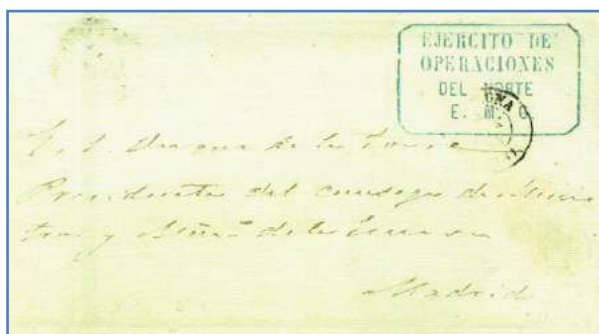 EJERCITO DE
OPERACIONES
DEL NORTE
E. M. G.
E. S. Duque de la Torre
Presidente del consejo de Minis
tros y de la Guerra
Madrid